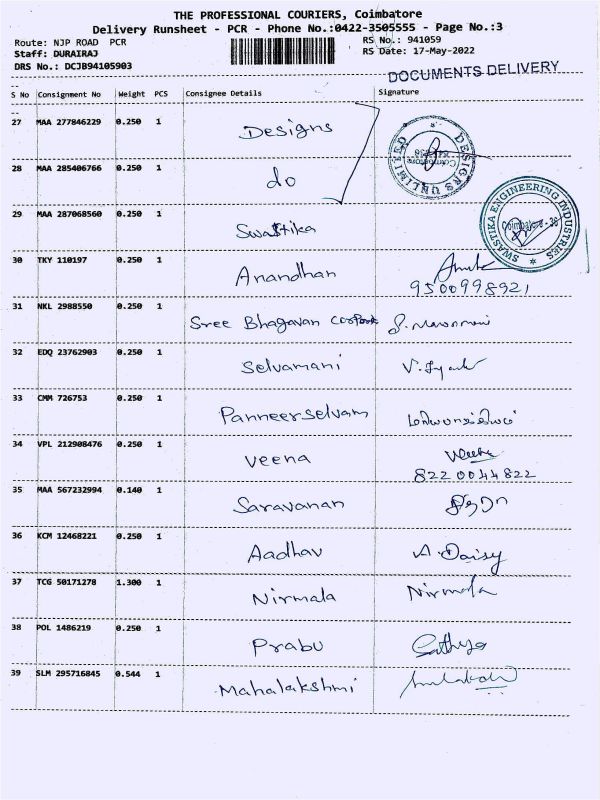 THE PROFESSIONAL COURIERS, Coimbatore
Delivery Runsheet - PCR - Phone No.:0422-3505555 - Page No.:3
Route: NJP ROAD PCR
RS No.: 941059
Staff: DURAIRAJ
RS Date: 17-May-2022
DRS No.: DCJB94105903
DOCUMENTS DELIVERY
S No Consignment No Weight PCS Consignee Details Signature
27 MAA 277846229 0.250 1 Designs
DESIGNS UNLIMITED
Coimbatore
28 MAA 285406766 0.250 1 do
29 MAA 287068560 0.250 1 Swastika
SWASTIKA ENGINEERING INDUSTRIES
Coimbatore - 38
30 TKY 110197 0.250 1 Anandhan
9500998921
31 NKL 2988550 0.250 1 Sree Bhagavan
32 EDQ 23762903 0.250 1 Selvamani
33 CMM 726753 0.250 1 Panneerselvam
34 VPL 212908476 0.250 1 Veena Veena
8220044822
35 MAA 567232994 0.140 1 Saravanan
36 KCM 12468221 0.250 1 Aadhav A. Daisy
37 TCG 50171278 1.300 1 Nirmala Nirmala
38 POL 1486219 0.250 1 Prabu Sathya
39 SLM 295716845 0.544 1 Mahalakshmi